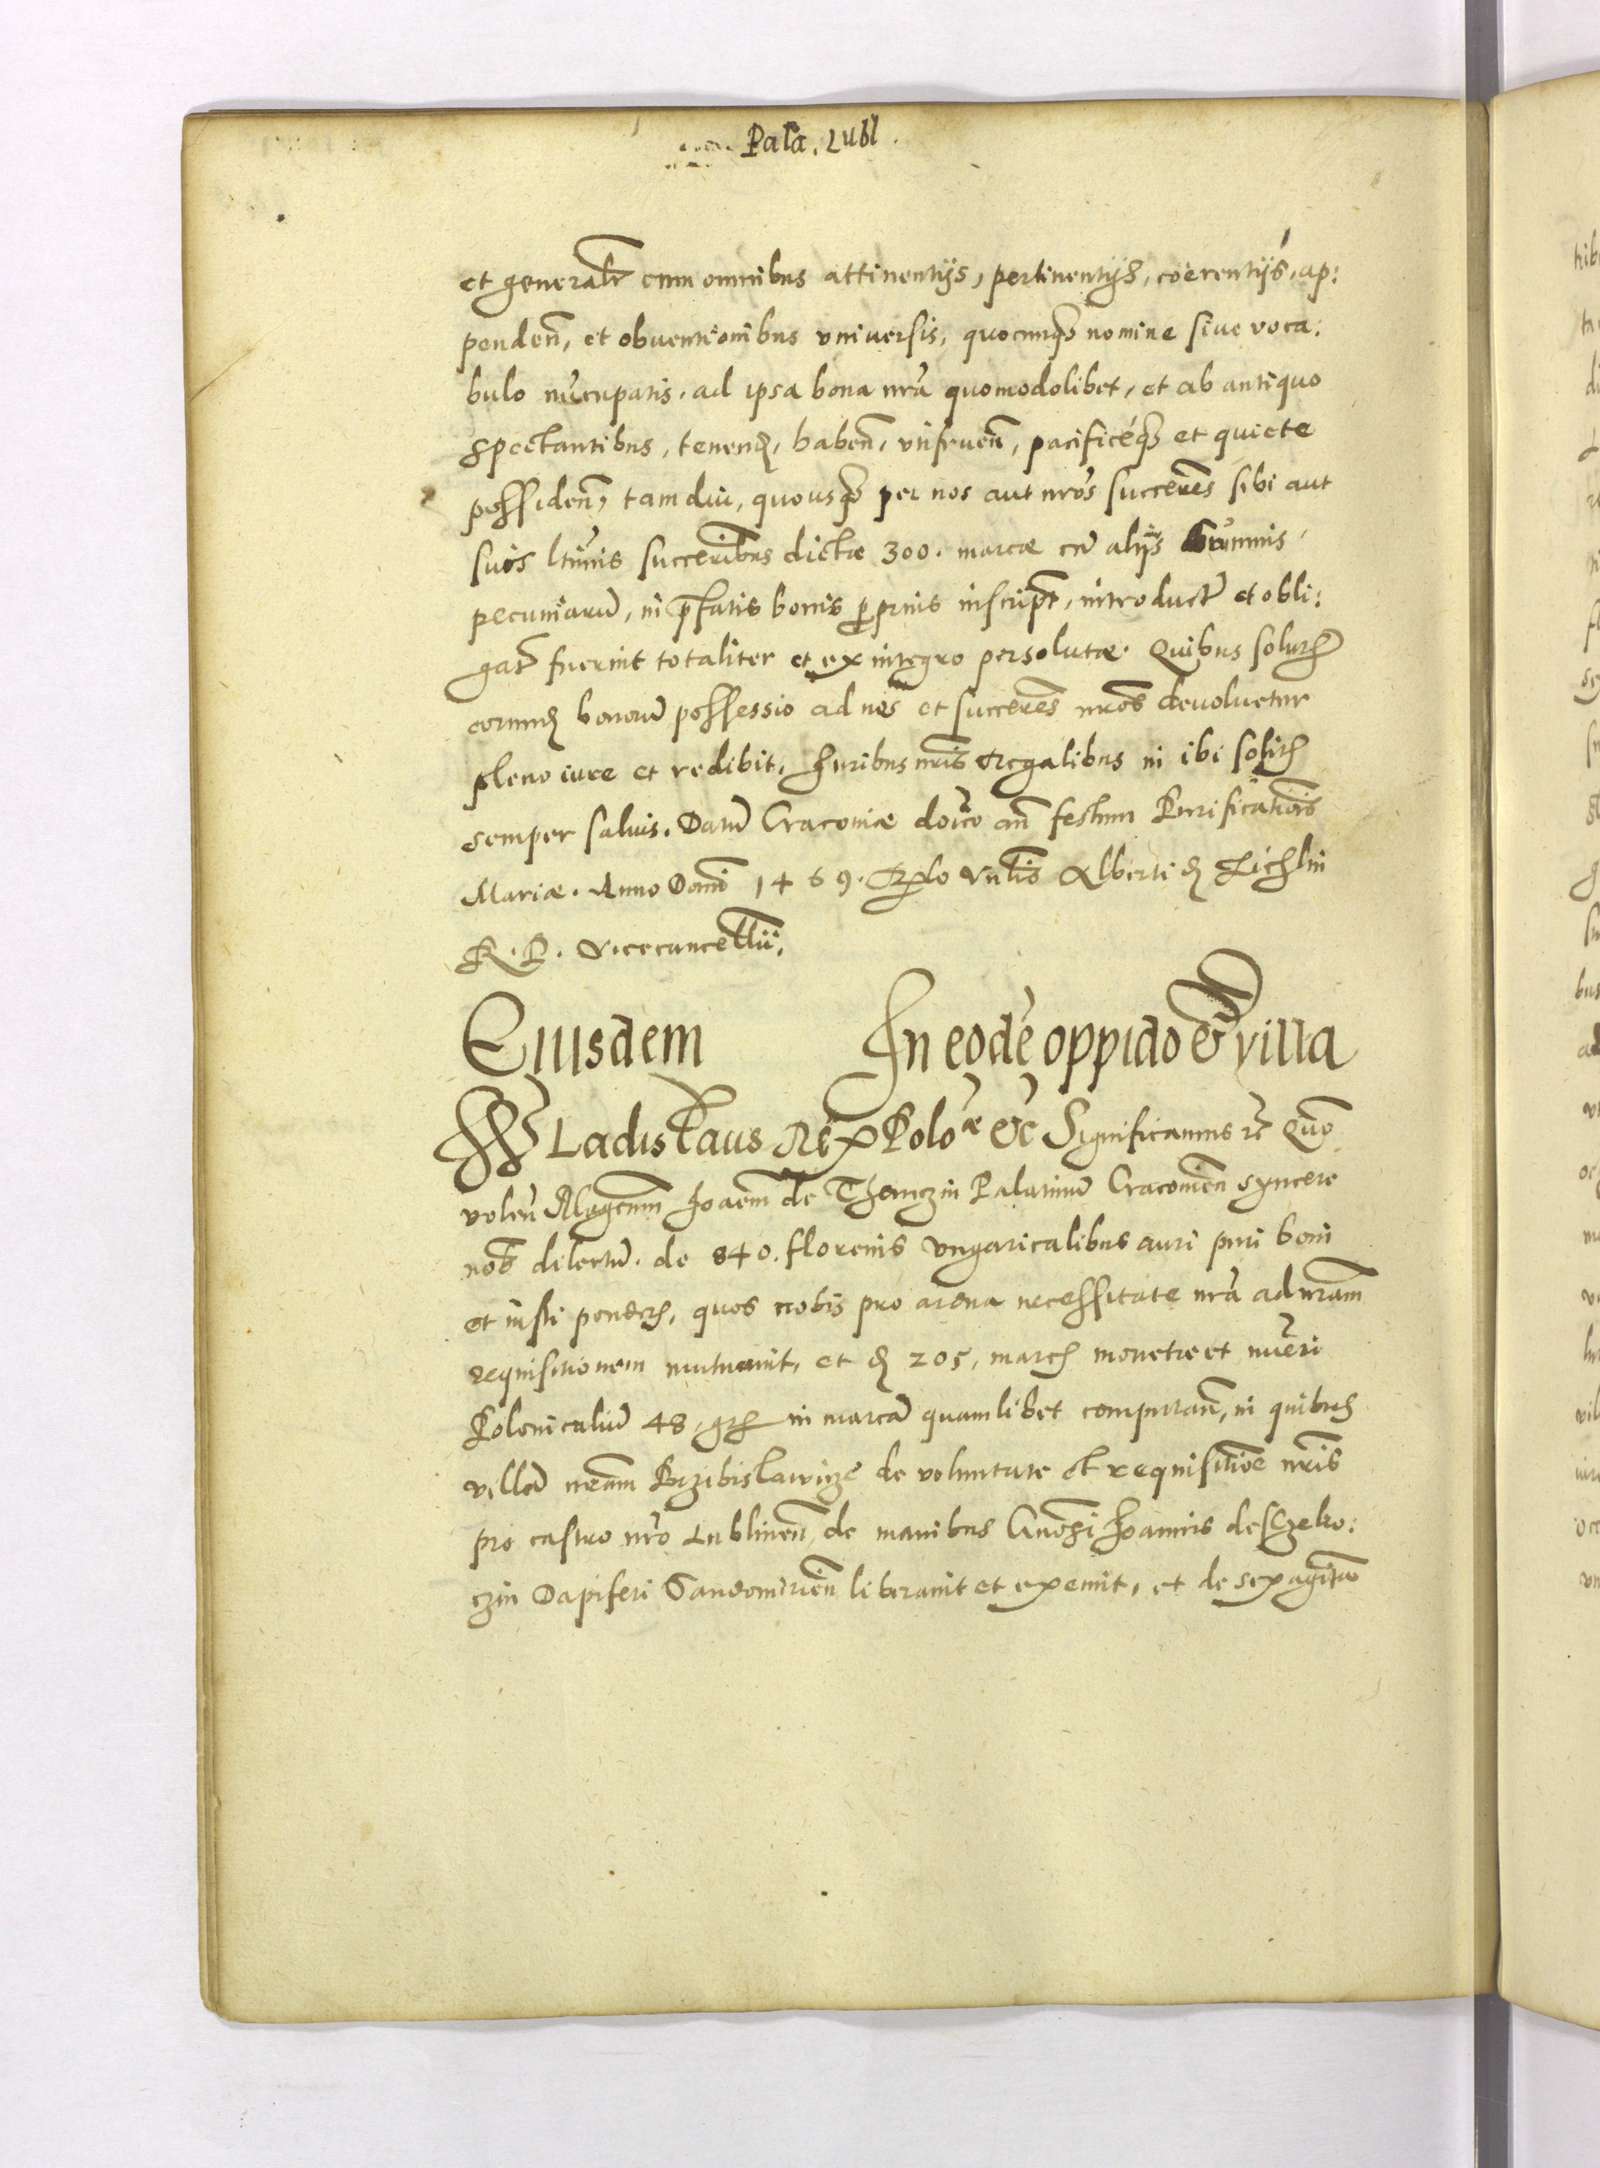 Pala. Lubl.
et generalr cum omnibus attinentijs, pertinentijs, coerentijs, ap:
penden, et obventionibus vniversis, quocunqз nomine sive voca:
bulo nucupatis, ad ipsa bona nra quomodolibet, et ab antiquo
spectantibus, tenend, haben, vtifruen, pacificeqз et quiete
possiden, tam diu, quousqз per nos aut nros succeres sibi aut
suis ltimis succeribus dictæ 300. marcæ cu alijs summis
pecuniaru, in pfatis bonis p prius inscript, introduct et obli:
gat fuerint totaliter et ex integro persolutæ. Quibus solutis
eorund bonoru possessio ad nos et succeres nros devoluetur
pleno iure et redibit, Iuribus nris Regalibus in ibi solitis
semper saluis. Datu Cracoviæ doico an festum Purificatiois
Mariæ. Anno Domi 1469. Rlo Vnlis Alberti d Zichlin
R. P. Vicecancellii.
Eiusdem In eode oppido et villa
Wladislaus Rex Poloæ etc Significamus rc Quo
volen Magcum Ioaem de Thenczin Palatinu Cracovien syncere
nob dilectu. de 840. florenis vngaricalibus auri puri boni
et iusti ponderis, quos nobis pro ardua necessitate nra ad nram
requisitionem mutuavit, et d 205, marcis monetæ et nueri
Polonicaliu 48 gris in marca quamlibet computan, in quibus
villa nram Przibislawicze de voluntate et requisitioe nris
pro castro nro Lublinen de manibus Gnosi Joannis de Sczeko:
czin Dapiferi Sandomirien liberavit et exemit, et de sexaginta